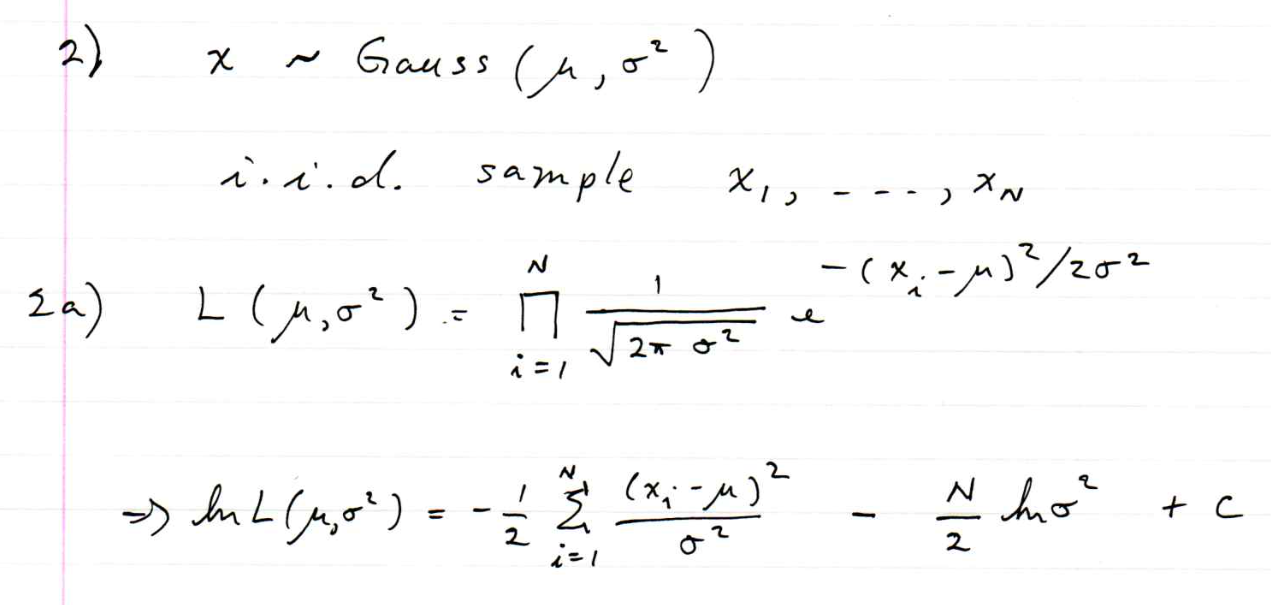 2) x ~ Gauss (μ, σ²)
i.i.d. sample x₁, ----, x_N
2a) L(μ,σ²) = ∏_{i=1}^{N} 1/√(2π σ²) e^{-(x_i-μ)²/2σ²}
=> ln L(μ,σ²) = -1/2 Σ_{i=1}^{N} (x_i-μ)²/σ² - N/2 ln σ² + C